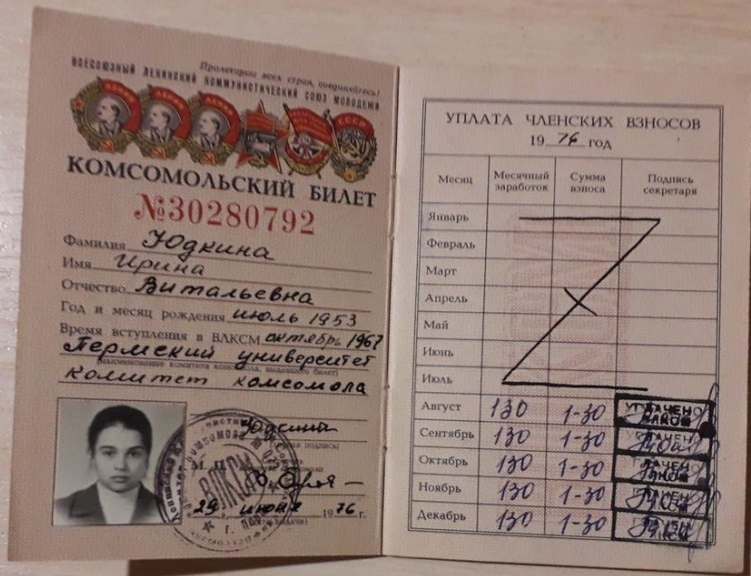 Пролетарии всех стран, соединяйтесь!
ВСЕСОЮЗНЫЙ ЛЕНИНСКИЙ КОММУНИСТИЧЕСКИЙ СОЮЗ МОЛОДЕЖИ
КОМСОМОЛЬСКИЙ БИЛЕТ
№30280792
Фамилия Юдкина
Имя Ирина
Отчество Витальевна
Год и месяц рождения июль 1953
Время вступления в ВЛКСМ октябрь 1967
Пермский университет
комитет комсомола
М. П.
ВЛКСМ
29 июня 1976 г.
УПЛАТА ЧЛЕНСКИХ ВЗНОСОВ
1976 год
Месяц Месячный заработок Сумма взноса Подпись секретаря
Январь
Февраль
Март
Апрель
Май
Июнь
Июль
Август 130 1-30 УПЛАЧЕНО ВЛКСМ
Сентябрь 130 1-30
Октябрь 130 1-30
Ноябрь 130 1-30
Декабрь 130 1-30